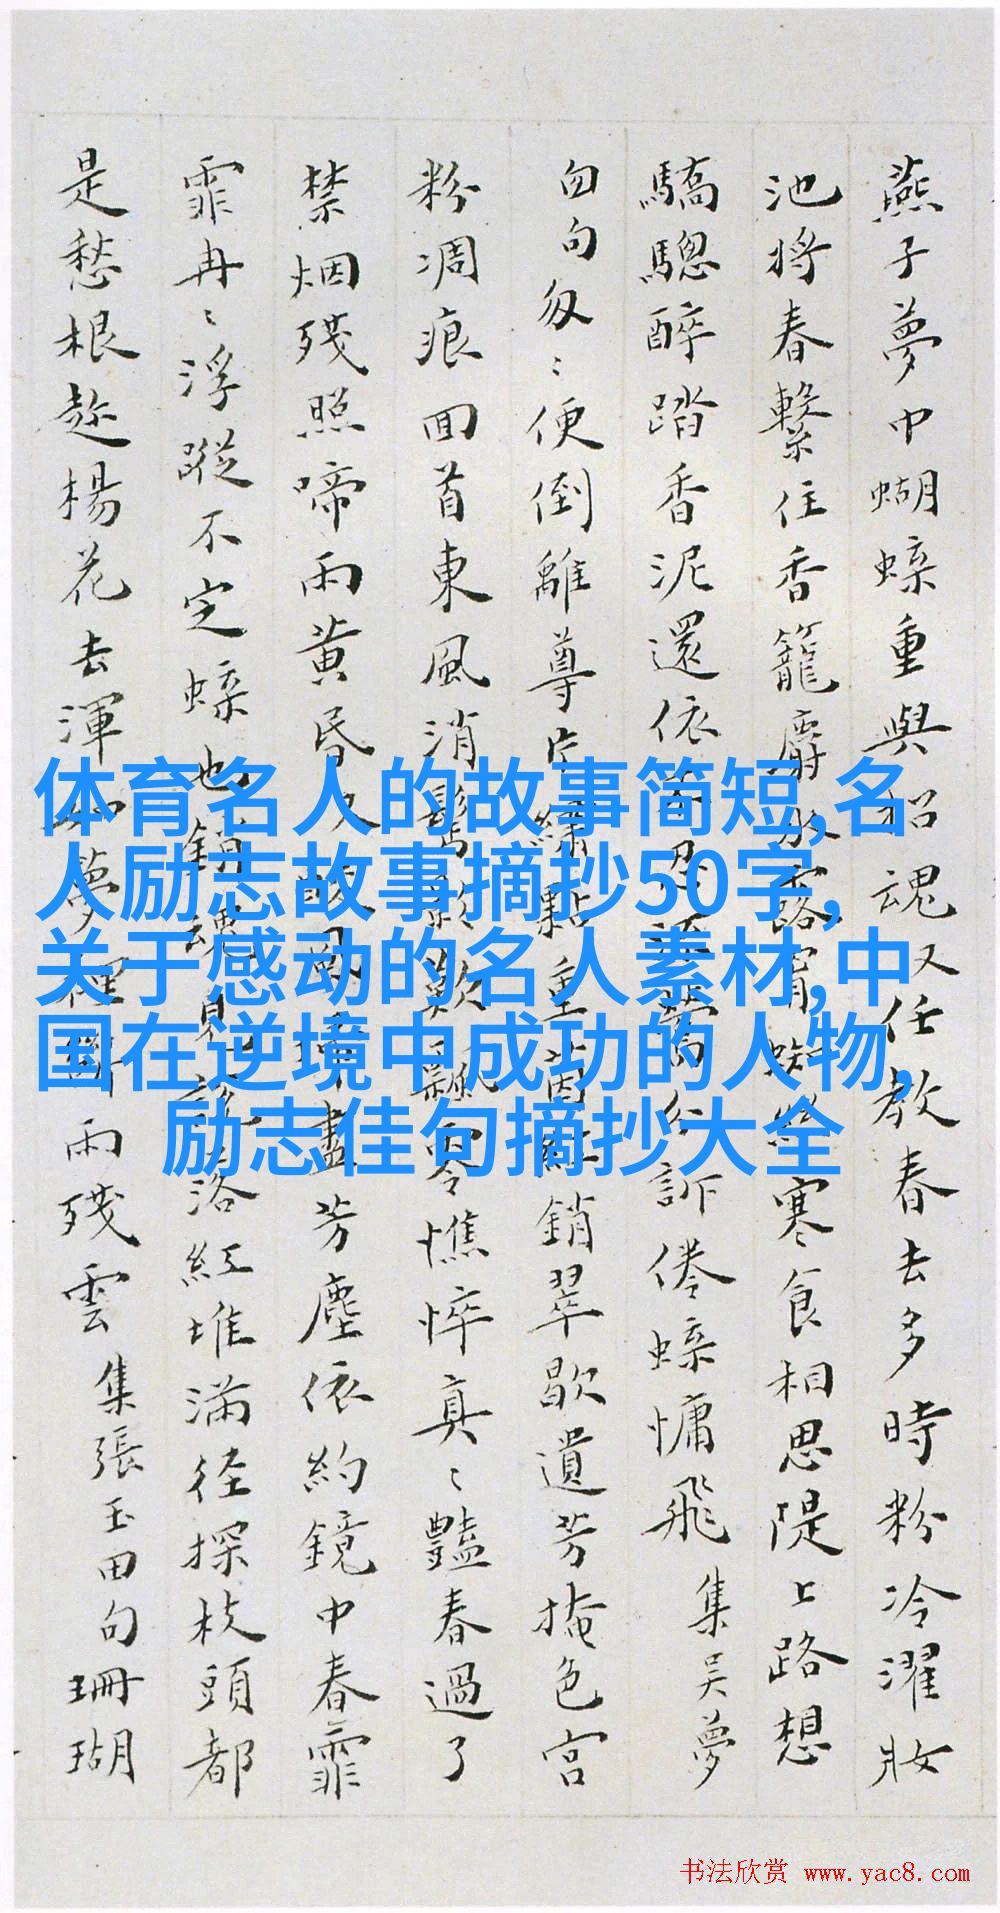 燕子夢中蝴蝶重與招魂又任教春去多時粉冷濯妝
池將春繫住香籠麝寒食相思隄上路想
驕驄醉踏香泥還依訴倦蝶慵飛 集吳夢
句匆〻便倒離尊片繡點重銷翠歇遺芳掩色宮
粉凋痕回首東風消鬢影歎飄零憔悴真〻豔春過了
禁烟殘照啼雨黃昏盡芳塵依約鏡中春霏
霏冉〻浮蹤不定蝶也銷魂見説落紅堆滿徑探枝頭都
是愁根趁楊花去渾如夢裡斷雨殘雲 集張玉田句珊瑚
体育名人的故事简短,名
人励志故事摘抄50字,
关于感动的名人素材,中
国在逆境中成功的人物,
励志佳句摘抄大全
书法欣赏 www.yac8.com